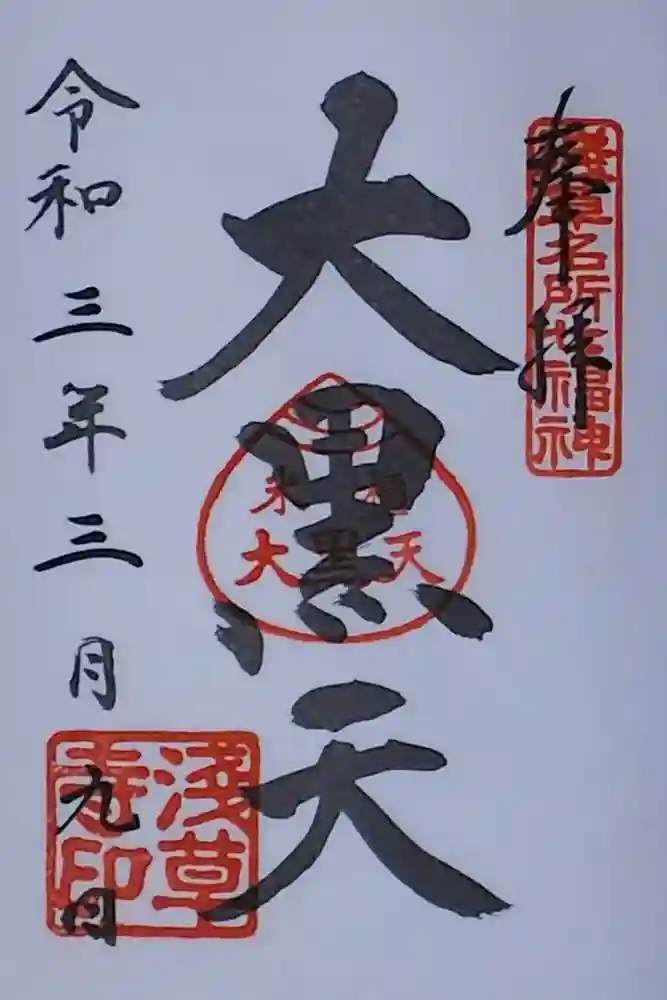 奉拝
浅草名所七福神
大黒天
米櫃
大黒天
令和三年三月九日
淺草
寺印